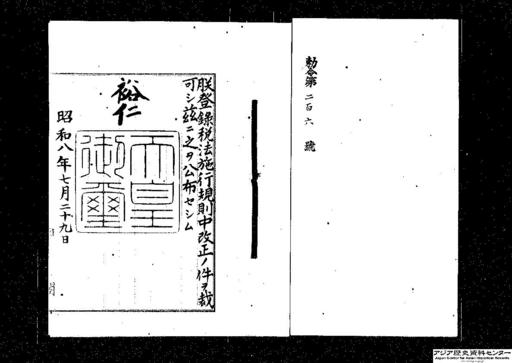 勅令第二百六號
朕登錄税法施行規則中改正ノ件ヲ裁
可シ茲ニ之ヲ公布セシム
裕仁
天皇御璽
昭和八年七月二十九日
アジア歴史資料センター
Japan Center for Asian Historical Records